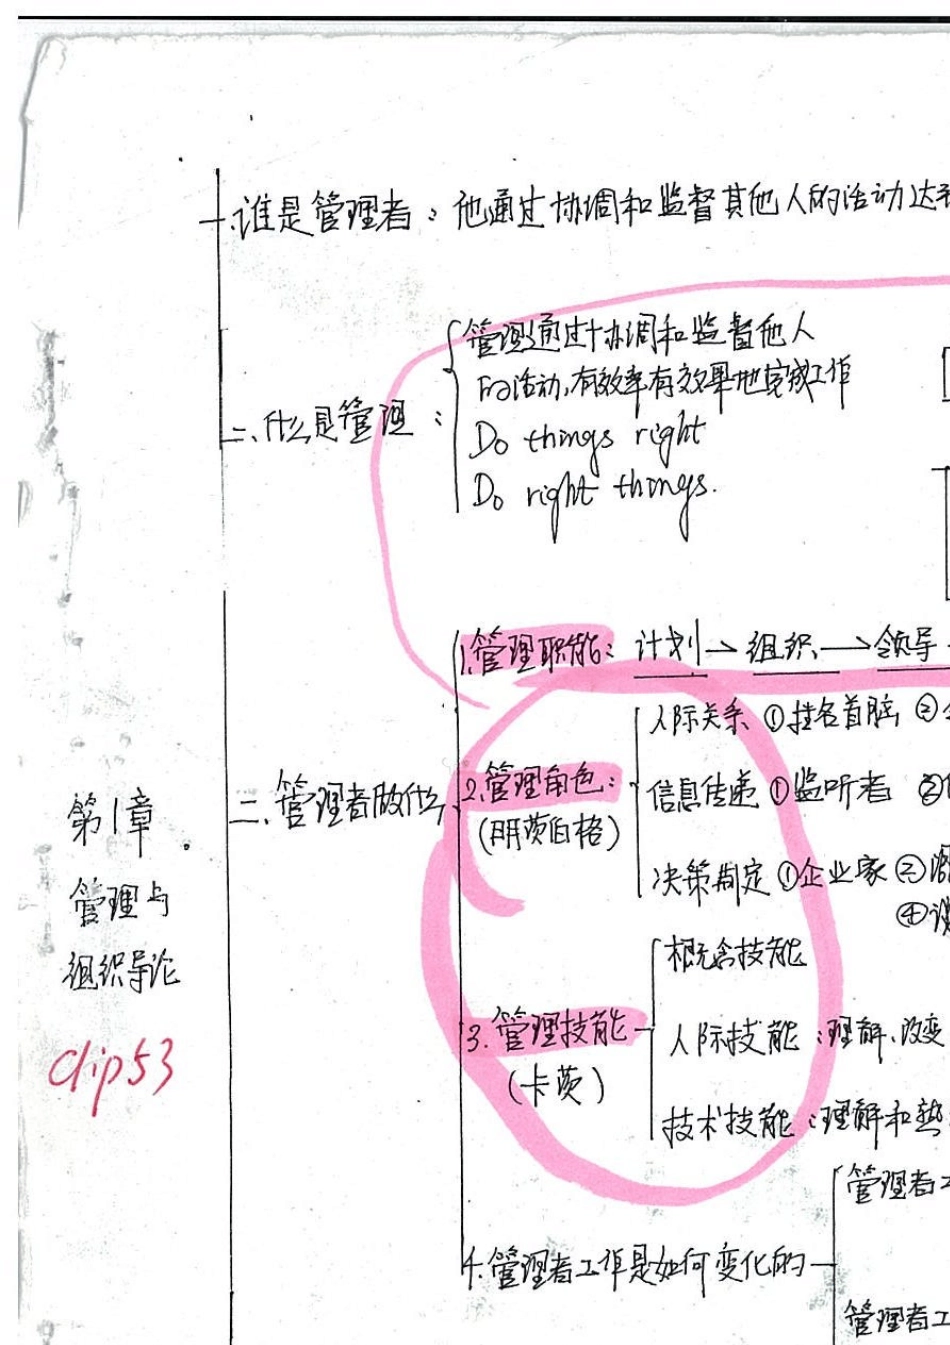 一.谁是管理者：他通过协调和监督其他人的活动达
管理通过协调和监督他人
的活动,有效率有效果地完成工作
二、什么是管理：
Do things right
Do right things.
1.管理职能：计划→组织→领导
人际关系 ①挂名首脑 ②
2.管理角色：
信息传递 ①监听者 ②
(明茨伯格)
决策制定 ①企业家 ②
④
三、管理者做什么
第1章
管理与
组织导论
clip53
概念技能
3.管理技能
人际技能：理解、改变
(卡茨)
技术技能：理解和熟
管理者工
4.管理者工作是如何变化的
管理者工